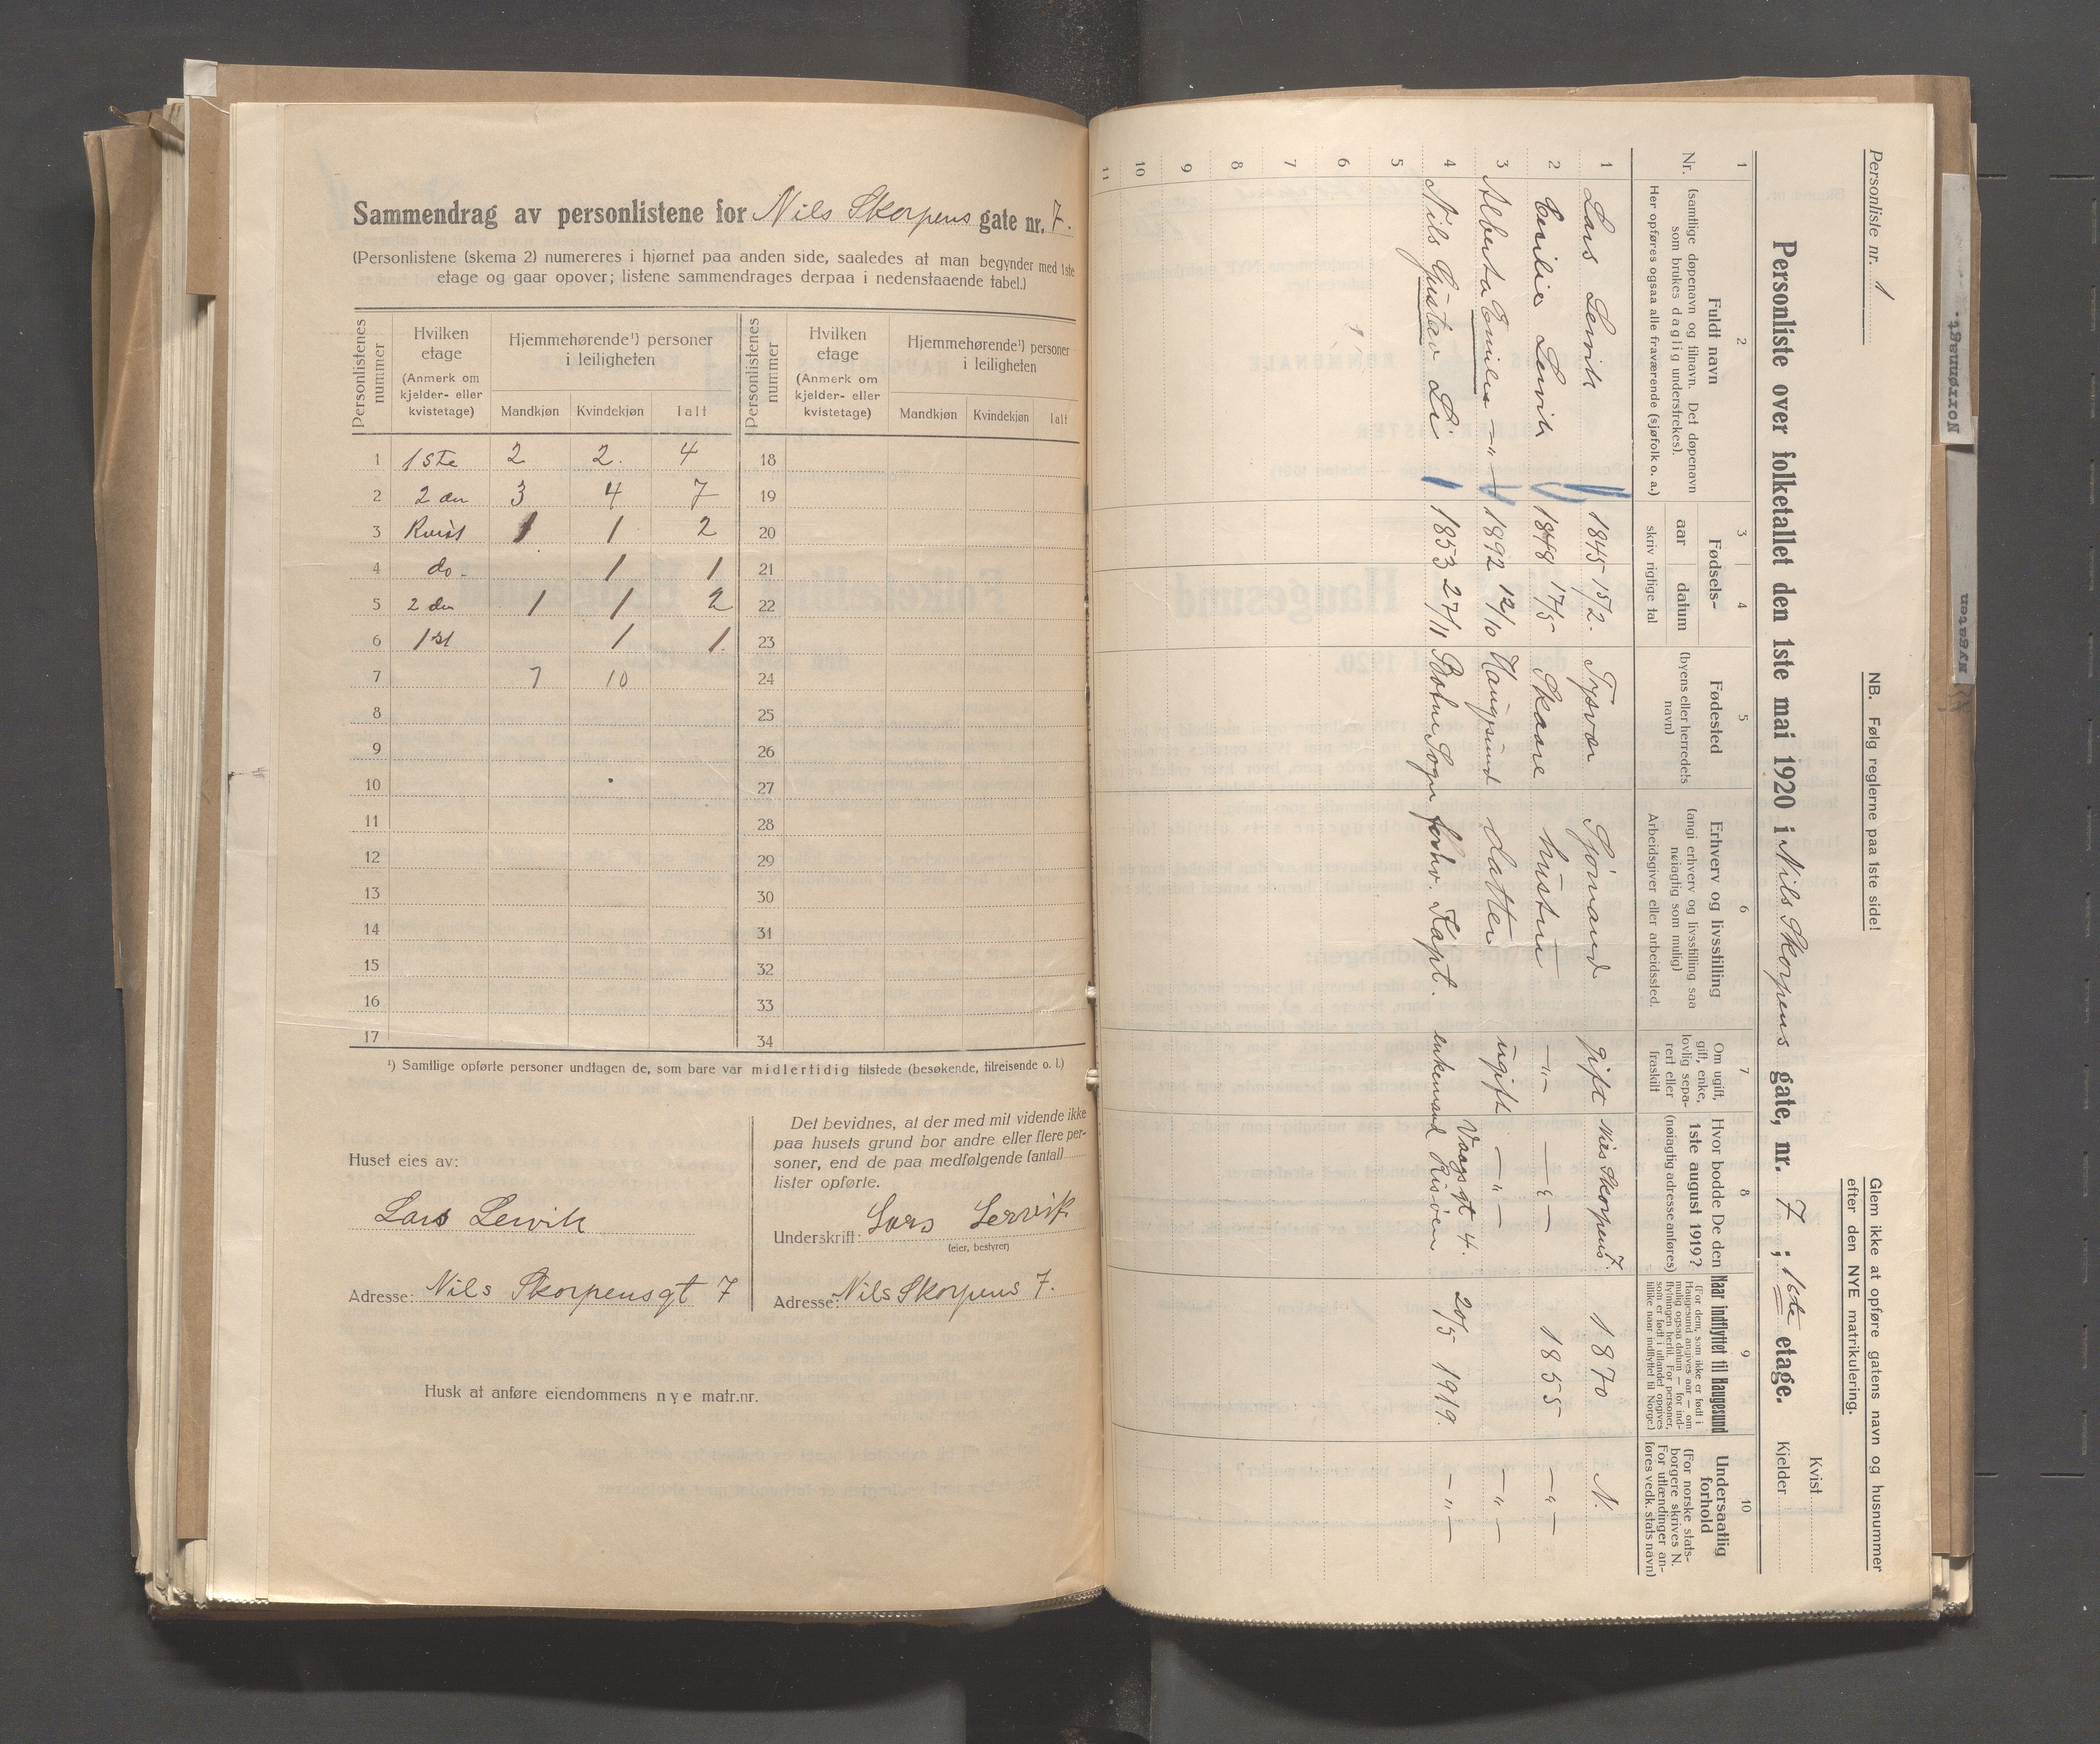 Sammendrag av personlistene for Nils Skorpens gate nr. 7.
(Personlistene (skema 2) numereres i hjørnet paa anden side, saaledes at man begynder med 1ste
etage og gaar opover; listene sammendrages derpaa i nedenstaaende tabel.)
Personlistenes nummer | Hvilken etage (Anmerk om kjelder- eller kvistetage) | Hjemmehørende¹) personer i leiligheten | Mandkjøn | Kvindekjøn | Ialt
Personlistenes nummer | Hvilken etage (Anmerk om kjelder- eller kvistetage) | Hjemmehørende¹) personer i leiligheten | Mandkjøn | Kvindekjøn | Ialt
1 1ste 2 2. 4 18
2 2den 3 4 7 19
3 Kvist 1 1 2 20
4 do- 1 1 21
5 2den 1 1 2 22
6 1st 1 1. 23
7 7 10 24
8 25
9 26
10 27
11 28
12 29
13 30
14 31
15 32
16 33
17 34
¹) Samtlige opførte personer undtagen de, som bare var midlertidig tilstede (besøkende, tilreisende o. l.)
Huset eies av:
Lars Lervik
Adresse: Nils Skorpensgt 7
Det bevidnes, at der med mit vidende ikke
paa husets grund bor andre eller flere per-
soner, end de paa medfølgende (antal)
lister opførte.
Underskrift: Lars Lervik
(eier, bestyrer)
Adresse: Nils Skorpens 7.
Husk at anføre eiendommens nye matr.nr.
Personliste nr. 1
NB. Følg reglerne paa 1ste side!
Glem ikke at opføre gatens navn og husnummer
efter den NYE matrikulering.
Personliste over folketallet den 1ste mai 1920 i Nils Skorpens gate, nr. 7; 1ste etage.
Kvist
Kjelder
1 2 3 4 5 6 7 8 9 10
Nr.
Fuldt navn
(samtlige døpenavn og tilnavn. Det døpenavn
som brukes daglig understrekes).
Her opføres ogsaa alle fraværende (sjøfolk o. a.)
Fødsels-
aar datum
skriv rigtige tal
Fødested
(byens eller herredets
navn)
Erhverv og livsstilling
(angi erhverv og livsstilling saa
nøiagtig som mulig)
Arbeidsgiver eller arbeidssted.
Om ugift,
gift, enke,
lovlig sepa-
rert eller
fraskilt
Hvor bodde De den
1ste august 1919?
(nøiagtig adresse anføres)
Naar indflyttet til Haugesund
(For dem, som ikke er født i
Haugesund angives aar — om
mulig ogsaa datum — for ind-
flytningen hertil. For personer,
som er født i utlandet opgives
tillike naar indflyttet til Norge.)
Undersaatlig
forhold
(For norske stats-
borgere skrives N.
For utlændinger an-
føres vedk. stats navn)
1 Lars Lervik 1845 15/2. Tysvær Sjömand gift Nils Skorpens 7. 1870 N.
2 Cecilie Lervik 1848 17/5 Skaare hustru —"— —"— 1855 —"—
3 Alberta Emilie —"— 1892 12/10 Haugesund datter ugift —"— —"—
4 Nils Gustav Li 1853 27/11 Sogn forhv. Kapt. enkemand Vaagsgt 4. Risöen 20/5 1919. —"—
5
6
7
8
9
10
11
Norrønagt.
Nygaten